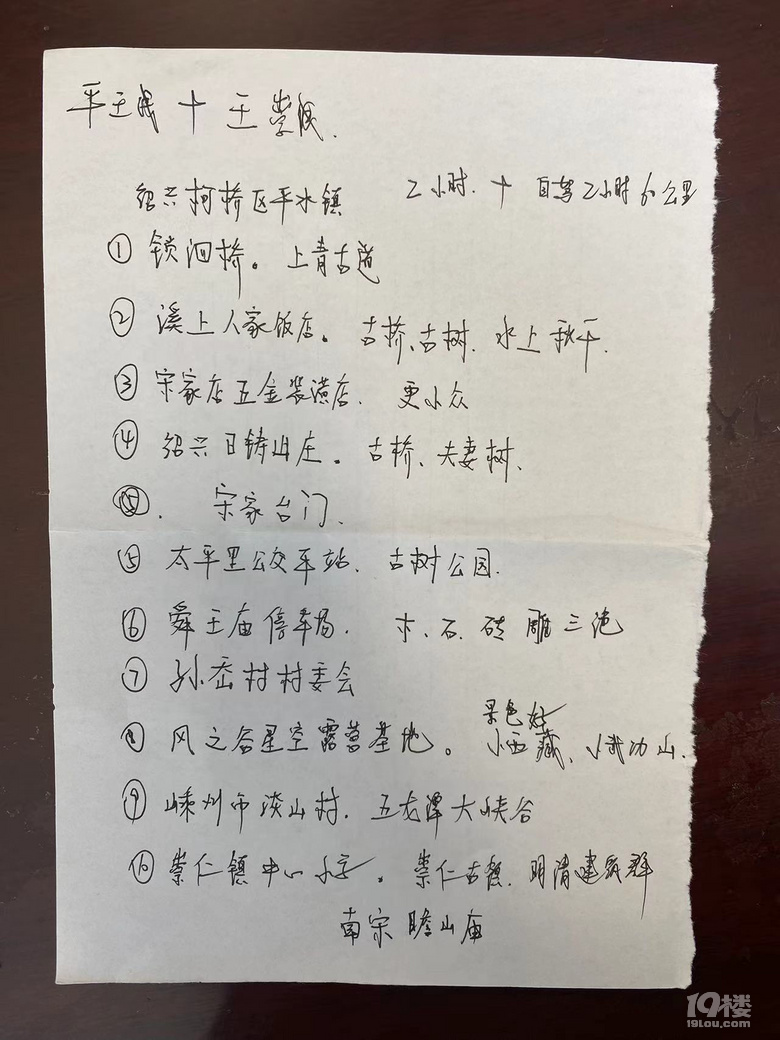 平王线 十 王崇线.
绍兴柯桥区平水镇 2小时. 十 自驾2小时 61公里
① 锁泗桥。上青古道
② 溪上人家饭店。古桥、古树. 水上秋千.
③ 宋家店五金装潢店. 更小众
④ 绍兴日铸山庄。古桥、夫妻树、
⑤. 宋家台门、
⑤ 太平里公交车站. 古树公园.
⑥ 舜王庙停车场. 木、石、砖 雕三绝
⑦ 孙岙村村委会
景色好
⑧ 风之谷星空露营基地。小西藏、小武功山.
⑨ 嵊州市淡山村. 五龙潭大峡谷
⑩ 崇仁镇中心小学。崇仁古镇. 明清建筑群
南宋 瞻山庙
19楼
19lou.com